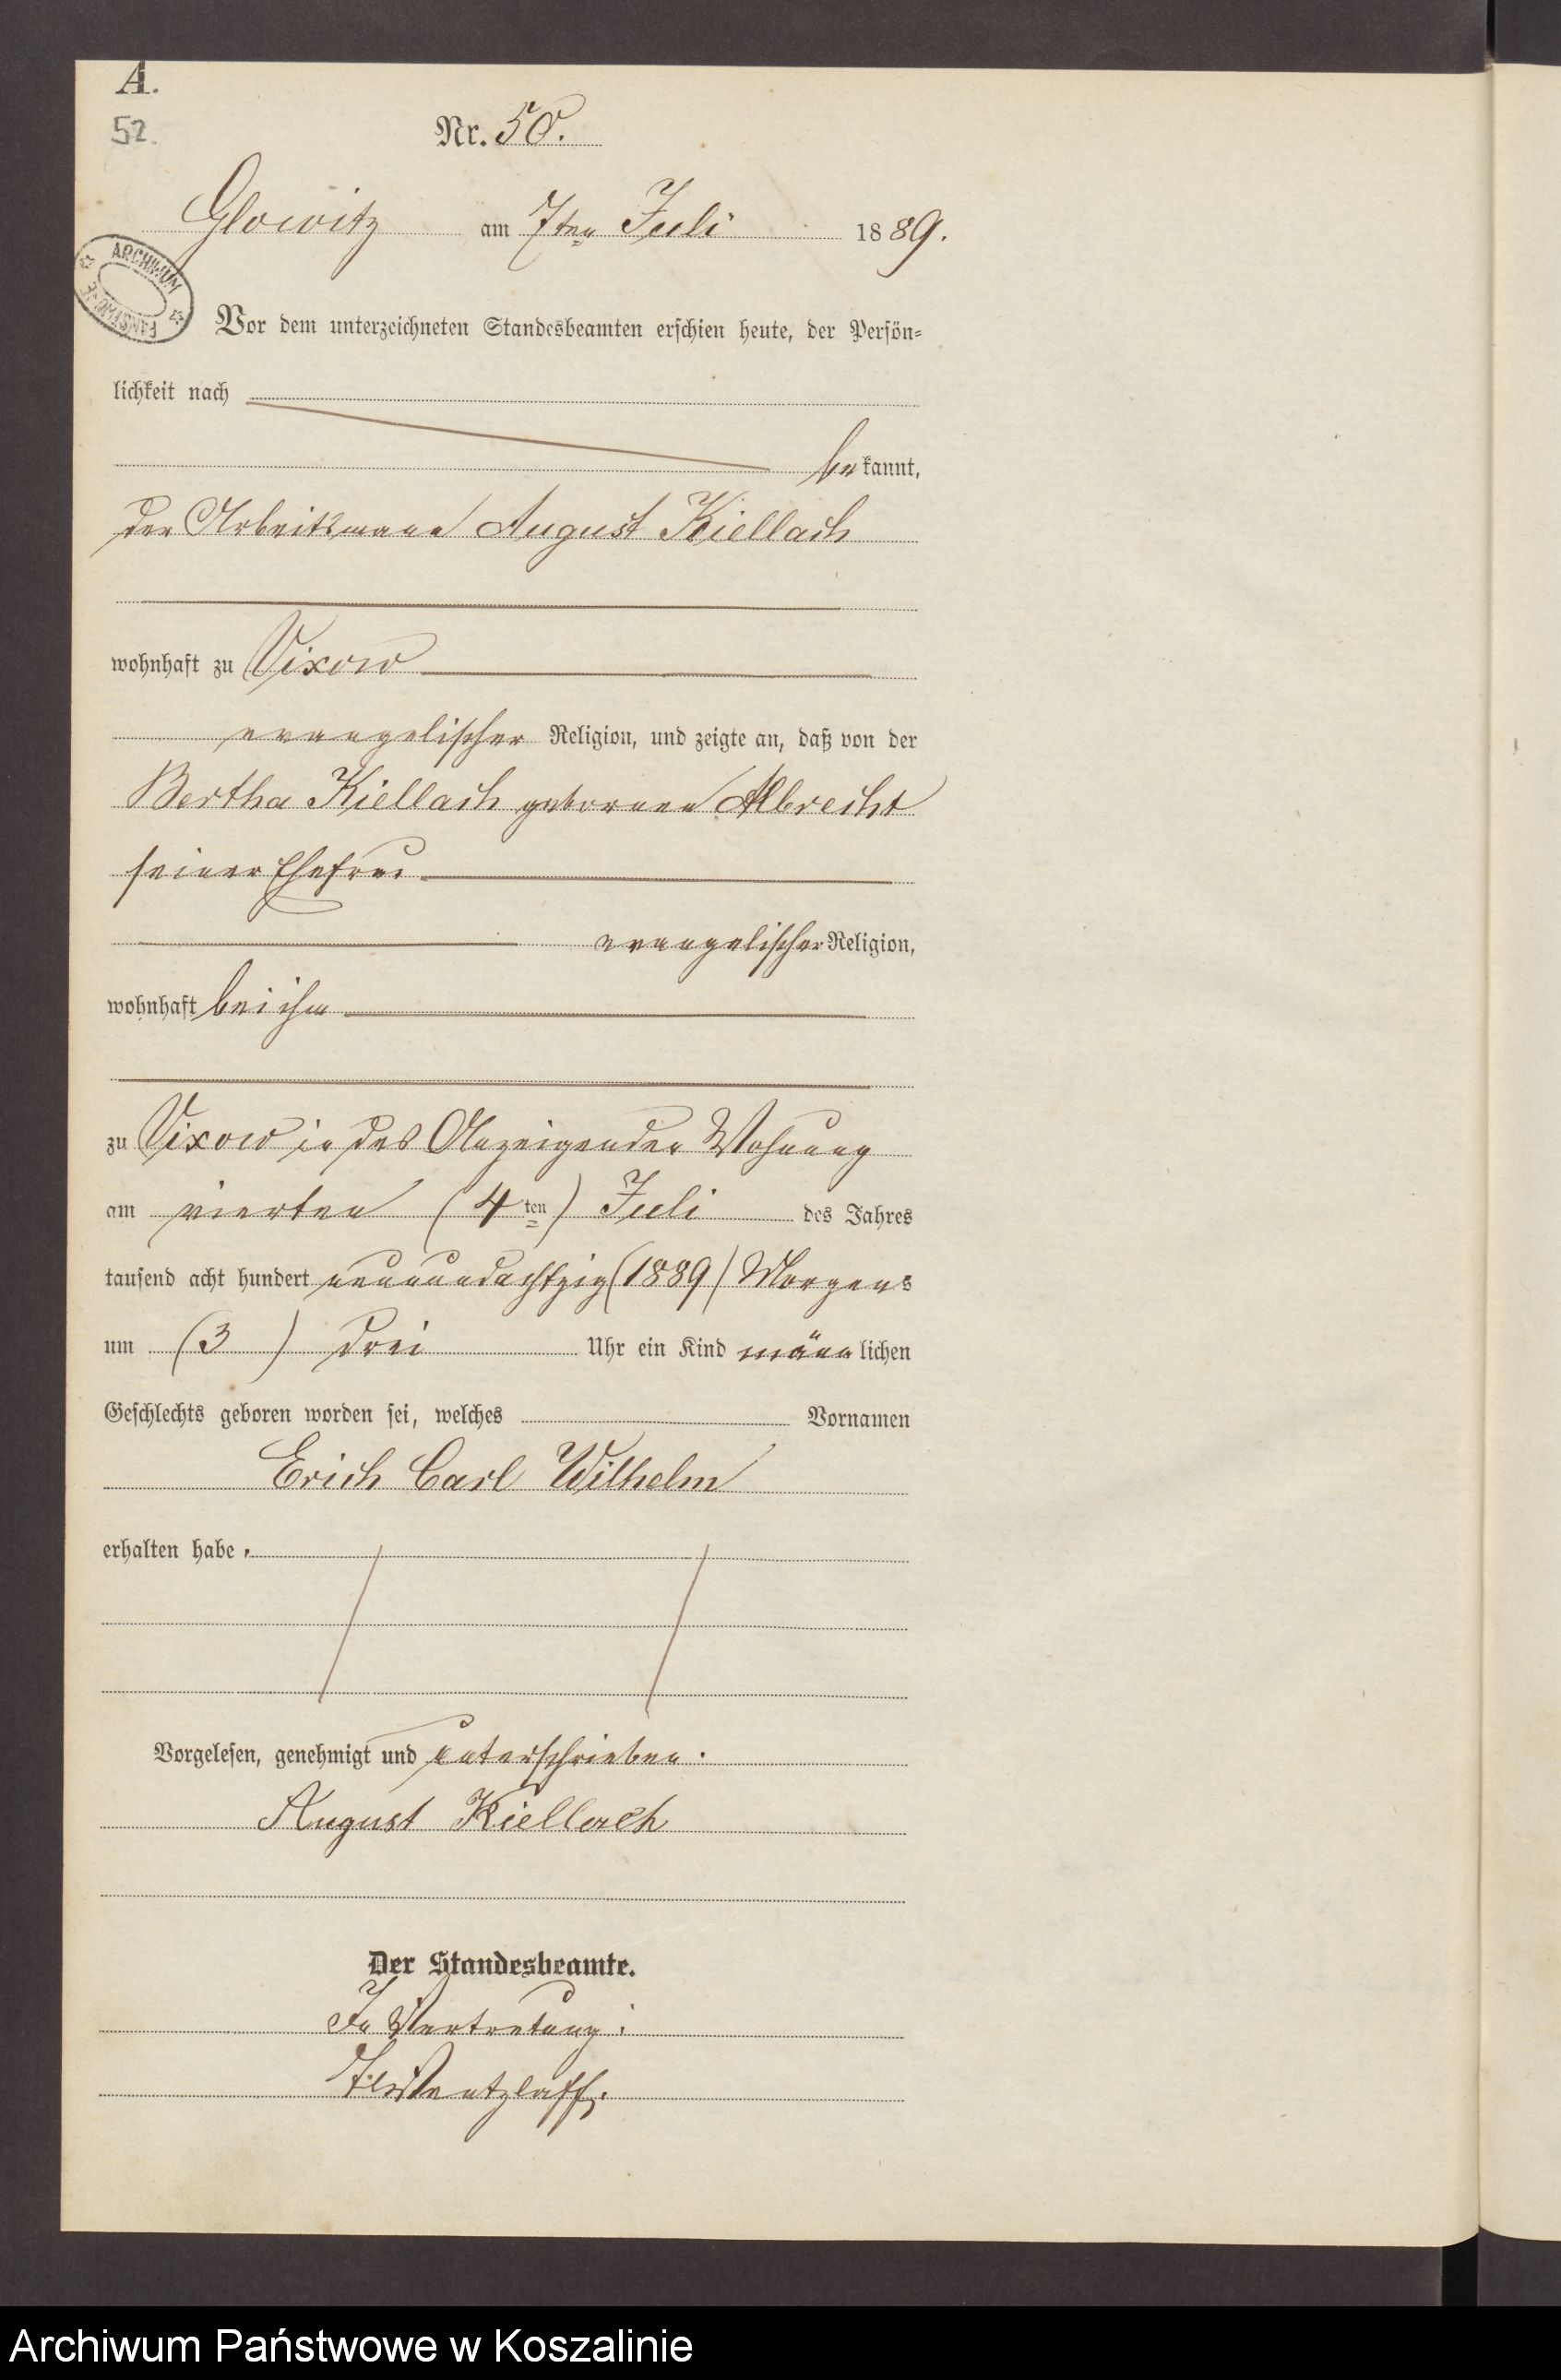 A.
52.
Nr. 50.
Glowitz am 7ten Juli 1889.
ARCHIWUM
PAŃSTWOWE
Vor dem unterzeichneten Standesbeamten erschien heute, der Persön-
lichkeit nach
bekannt,
der Arbeitsmann August Kiellach
wohnhaft zu Vixow
evangelischer Religion, und zeigte an, daß von der
Bertha Kiellach gebornen Albrecht
seiner Ehefrau
evangelischer Religion,
wohnhaft bei ihm
zu Vixow in des Anzeigenden Wohnung
am vierten (4ten) Juli des Jahres
tausend acht hundert neunundachtzig (1889) Morgens
um (3) drei Uhr ein Kind männlichen
Geschlechts geboren worden sei, welches Vornamen
Erich Carl Wilhelm
erhalten habe.
Vorgelesen, genehmigt und unterschrieben.
August Kiellach
Der Standesbeamte.
In Vertretung:
Wentzlaff.
Archiwum Państwowe w Koszalinie